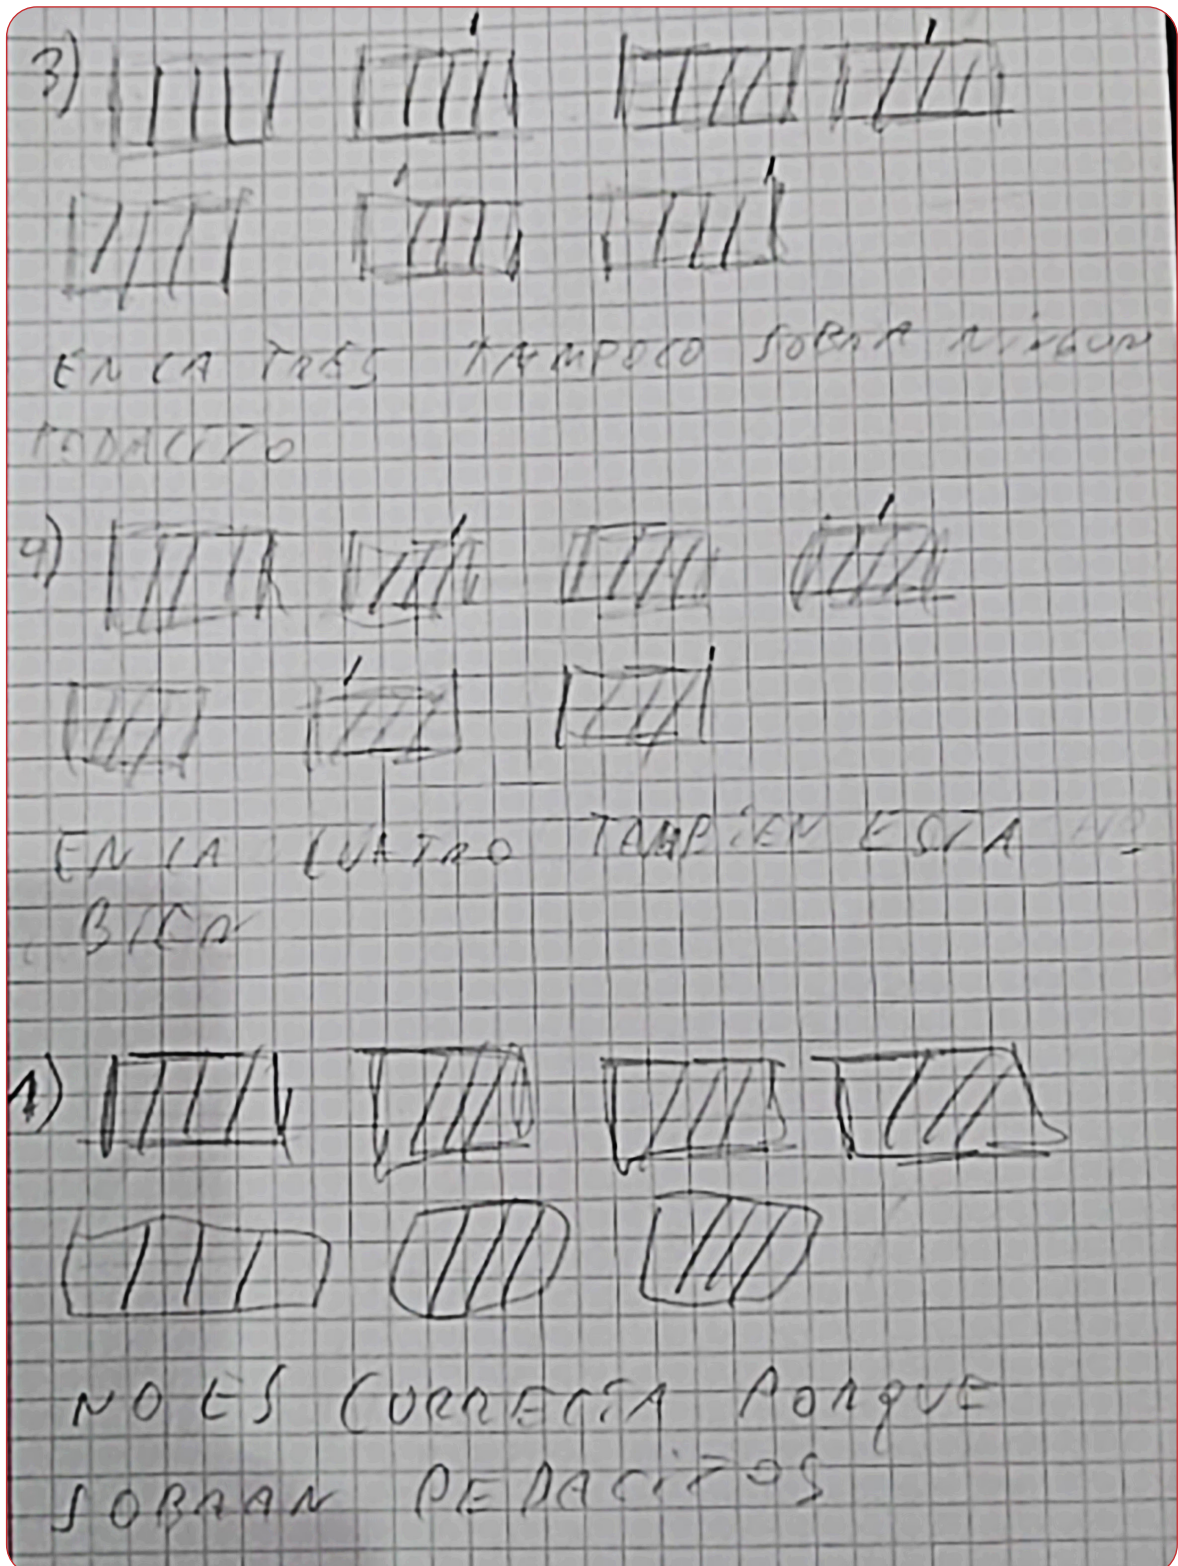 3)
EN LA TRES TAMPOCO SOBRA NINGUN
PEDACITO
4)
EN LA CUATRO TAMBIEN ESTA
BIEN
1)
NO ES CURRECTA PORQUE
SOBRAN PEDACITOS